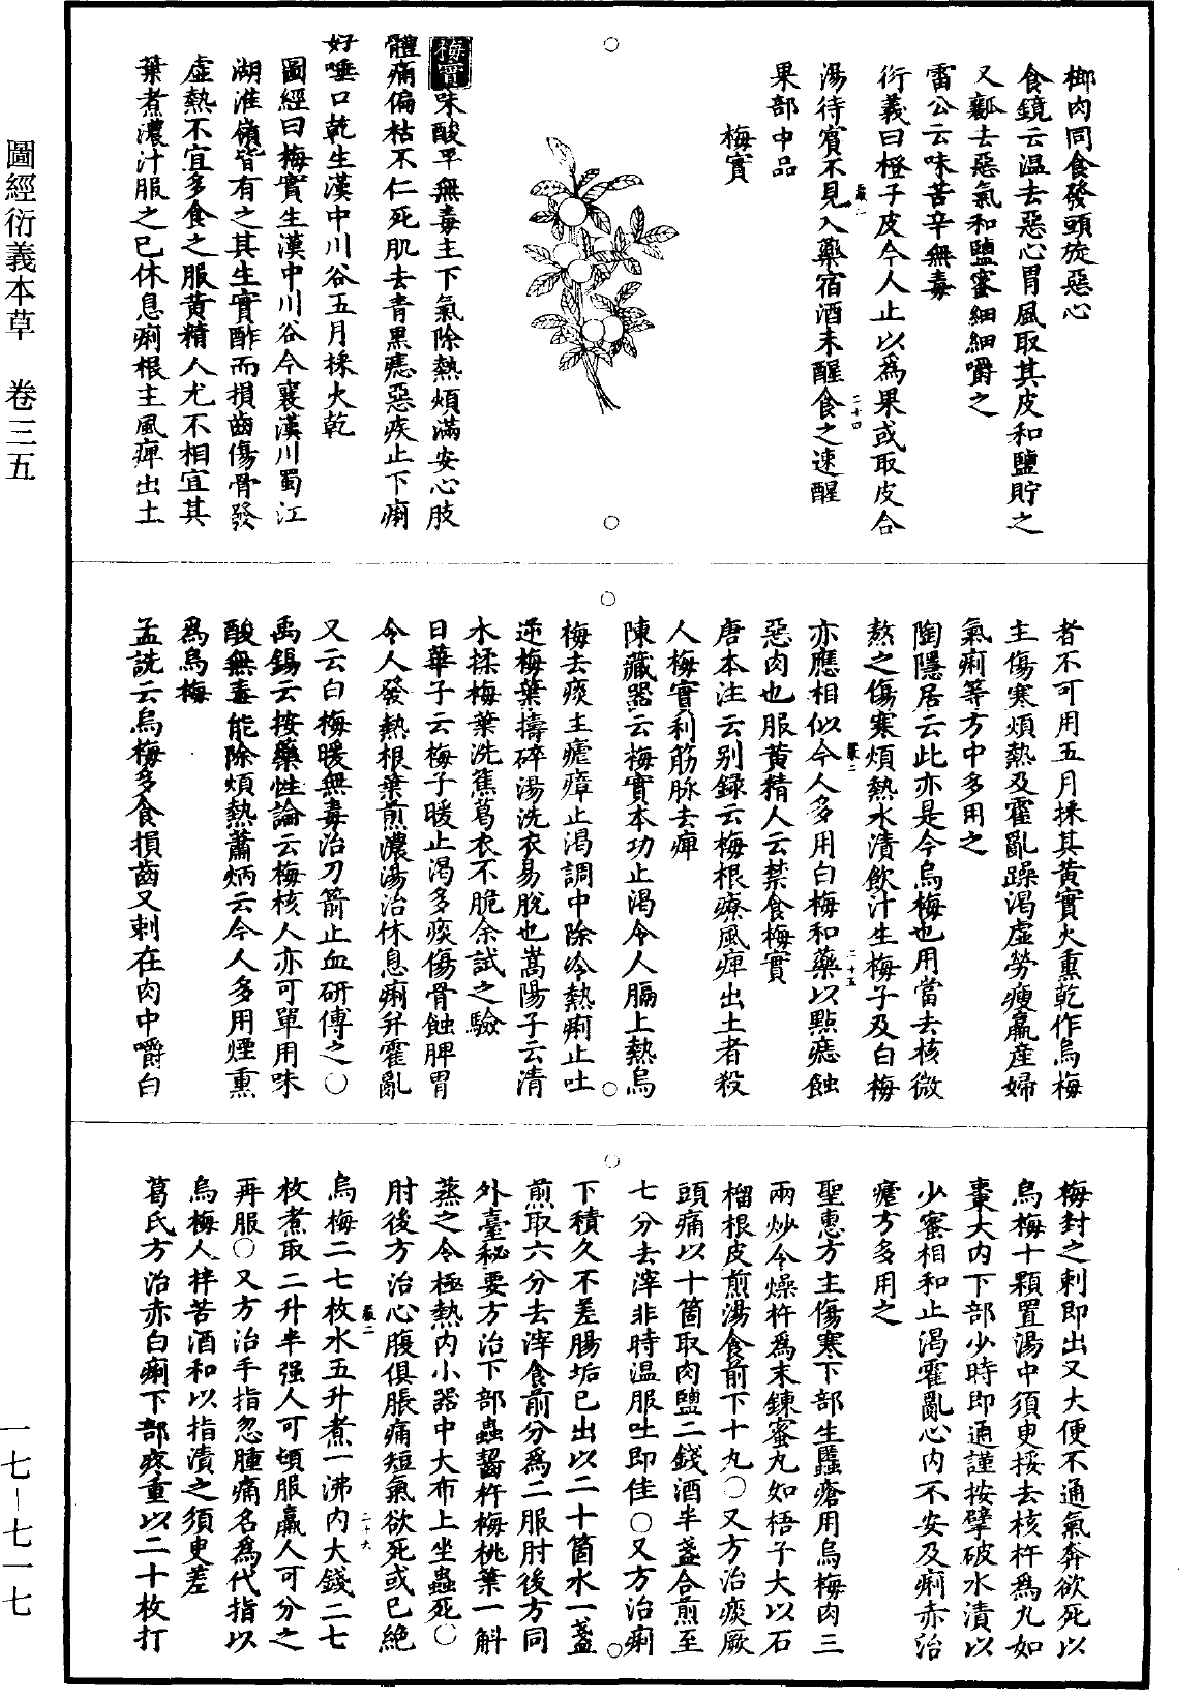 圖經衍義本草　卷三五
榔肉同食發頭旋惡心
食鏡云温去惡心胃風取其皮和鹽貯之
又瓤去惡氣和鹽蜜細細嚼之
雷公云味苦辛無毒
衍義曰橙子皮今人止以爲果或取皮合
湯待賓不見入藥宿酒未醒食之速醒
果部中品
梅實
梅實味酸平無毒主下氣除熱煩滿安心肢
體痛偏枯不仁死肌去青黑痣惡疾止下痢
好唾口乾生漢中川谷五月採火乾
圖經曰梅實生漢中川谷今襄漢川蜀江
湖淮嶺皆有之其生實酢而損齒傷骨發
虛熱不宜多食之服黄精人尤不相宜其
葉煮濃汁服之已休息痢根主風痺出土
者不可用五月採其黄實火熏乾作烏梅
主傷寒煩熱及霍亂躁渴虛勞瘦羸産婦
氣痢等方中多用之
陶隱居云此亦是今烏梅也用當去核微
熬之傷寒煩熱水漬飲汁生梅子及白梅
亦應相似今人多用白梅和藥以點痣蝕
惡肉也服黄精人云禁食梅實
唐本注云别録云梅根療風痺出土者殺
人梅實利筋脉去痺
陳藏器云梅實本功止渴令人膈上熱烏
梅去痰主瘧瘴止渴調中除冷熱痢止吐
逆梅葉擣碎湯洗衣易脫也嵩陽子云清
水揉梅葉洗蕉葛衣不脆余試之驗
日華子云梅子暖止渴多痰傷骨蝕脾胃
令人發熱根葉煎濃湯治休息痢并霍亂
又云白梅暖無毒治刀箭止血研傅之〇
禹錫云按藥性論云梅核人亦可單用味
酸無毒能除煩熱蕭炳云今人多用煙熏
爲烏梅
孟詵云烏梅多食損齒又刺在肉中嚼白
梅封之刺即出又大便不通氣奔欲死以
烏梅十顆置湯中須臾挼去核杵爲丸如
棗大内下部少時即通謹按擘破水漬以
少蜜相和止渴霍亂心内不安及痢赤治
瘧方多用之
聖惠方主傷寒下部生䘌瘡用烏梅肉三
兩炒令燥杵爲末鍊蜜丸如梧子大以石
榴根皮煎湯食前下十丸〇又方治痰厥
頭痛以十箇取肉鹽二錢酒半盞合煎至
七分去滓非時温服吐即佳〇又方治痢
下積久不差腸垢已出以二十箇水一盞
煎取六分去滓食前分爲二服肘後方同
外臺秘要方治下部蟲齧杵梅桃葉一斛
蒸之令極熱内小器中大布上坐蟲死〇
肘後方治心腹俱脹痛短氣欲死或已絶
烏梅二七枚水五升煮一沸内大錢二七
枚煮取二升半强人可頓服羸人可分之
再服〇又方治手指忽腫痛名爲代指以
烏梅人梓苦酒和以指漬之須臾差
葛氏方治赤白痢下部疼重以二十枚打
一七－七一七
二十四
二十五
二十六